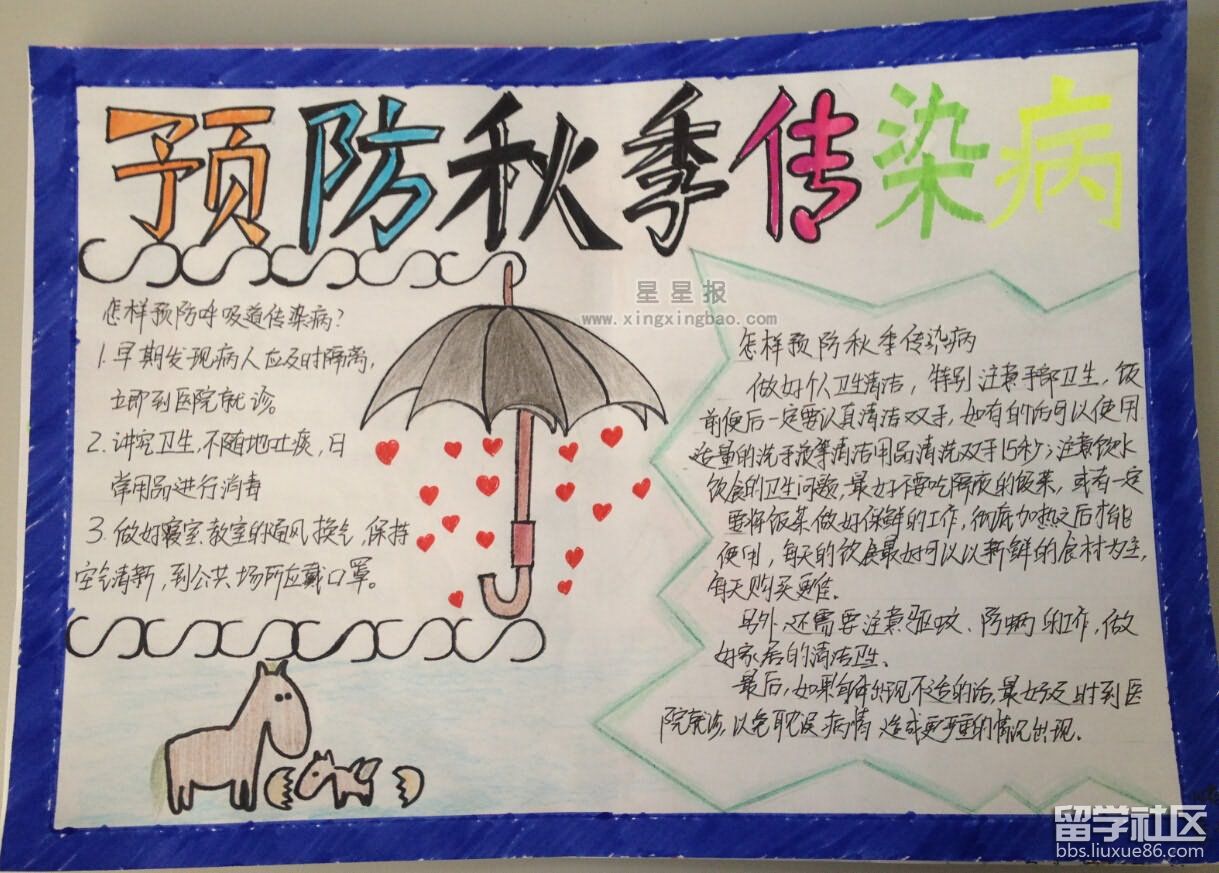 预防秋季传染病
星星报
www.xingxingbao.com
怎样预防呼吸道传染病?
1.早期发现病人应及时隔离,
立即到医院就诊。
2.讲究卫生,不随地吐痰,日
常用品进行消毒
3.做好寝室.教室的通风换气,保持
空气清新,到公共场所应戴口罩。
怎样预防秋季传染病
做好个人卫生清洁,特别注意手部卫生,饭
前便后一定要认真清洁双手,如有的话可以使用
适量的洗手液等清洁用品清洗双手15秒;注意饮水
饮食的卫生问题,最好不要吃隔夜的饭菜,或者一定
要将饭菜做好保鲜的工作,彻底加热之后才能
使用,每天的饮食最好可以以新鲜的食材为主,
每天购买更佳。
另外,还需要注意驱蚊、防螨的工作,做
好家居的清洁卫生、
最后,如果身体出现不适的话,最好及时到医
院就诊,以免耽误病情造成更严重的情况出现.
留学社区
bbs.liuxue86.com